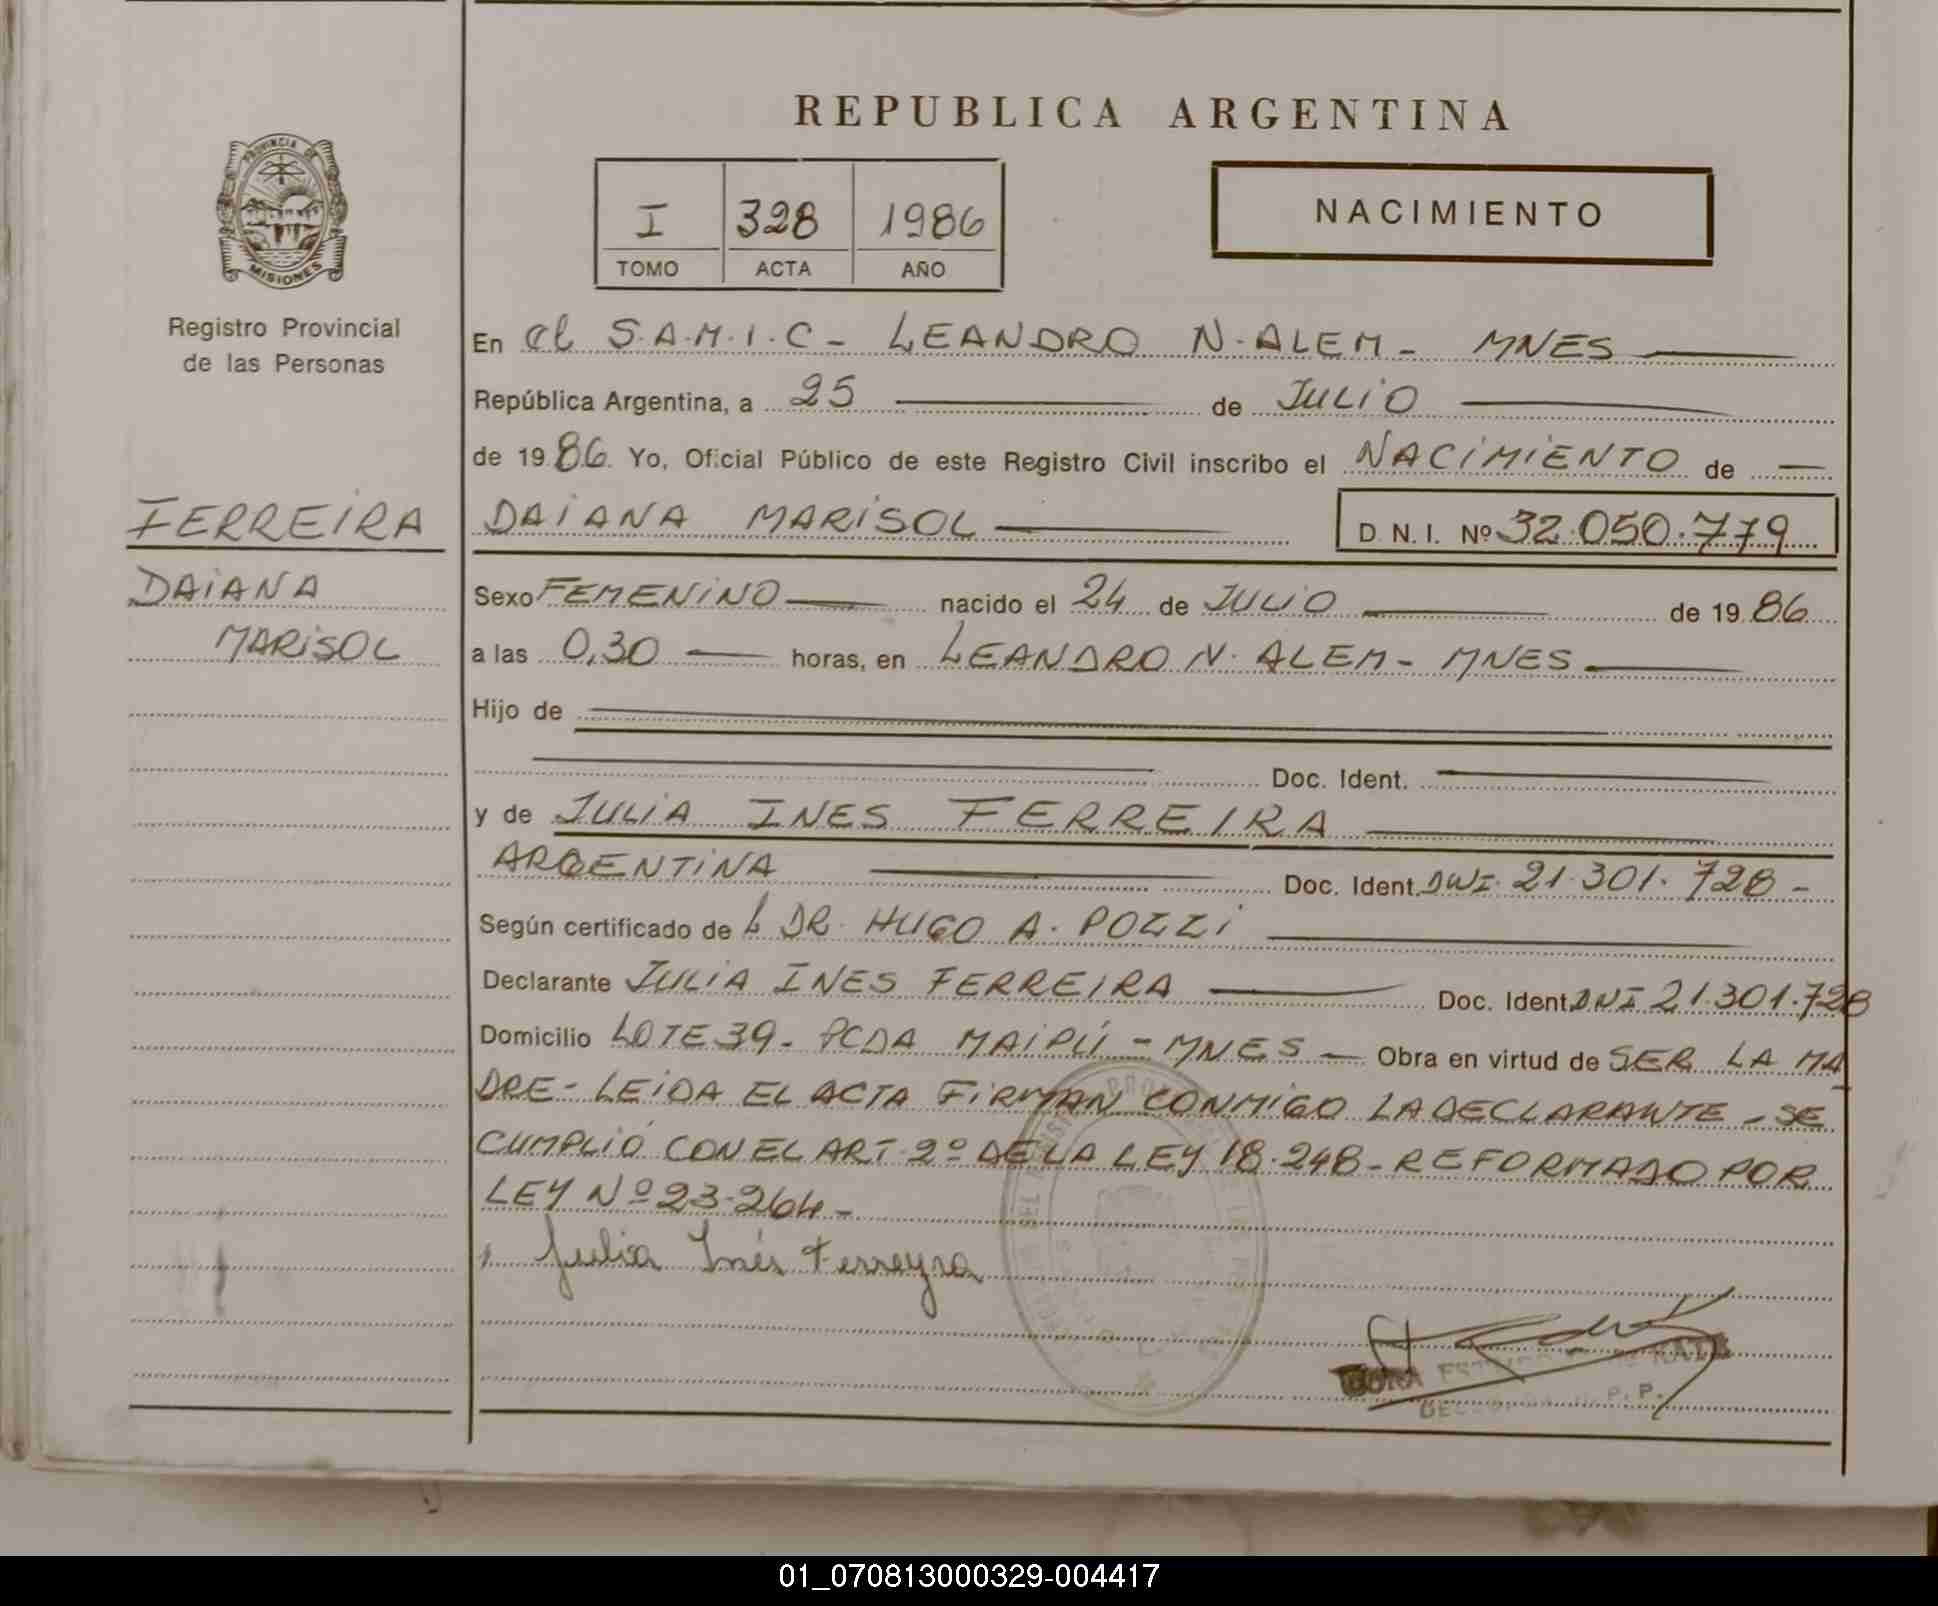 REPUBLICA ARGENTINA
PROVINCIA DE
MISIONES
Registro Provincial
de las Personas
I 328 1986
TOMO ACTA AÑO
NACIMIENTO
En el S.A.M.I.C - LEANDRO N. ALEM - MNES
República Argentina, a 25 de JULIO
de 1986. Yo, Oficial Público de este Registro Civil inscribo el NACIMIENTO de
FERREIRA
DAIANA
MARISOL
DAIANA MARISOL D.N.I. Nº 32.050.779
Sexo FEMENINO nacido el 24 de JULIO de 1986
a las 0,30 horas, en LEANDRO N. ALEM - MNES
Hijo de
Doc. Ident.
y de JULIA INES FERREIRA
ARGENTINA Doc. Ident. DNI. 21.301.728 -
Según certificado de L DR. HUGO A. POZZI
Declarante JULIA INES FERREIRA Doc. Ident. DNI 21.301.728
Domicilio LOTE 39 - PCDA MAIPÚ - MNES - Obra en virtud de SER LA MA
DRE - LEIDA EL ACTA FIRMAN CONMIGO LA DECLARANTE - SE
CUMPLIÓ CON EL ART. 2º DE LA LEY 18.248 - REFORMADO POR
LEY Nº 23.264 -
Julia Inés Ferreyra
01_070813000329-004417